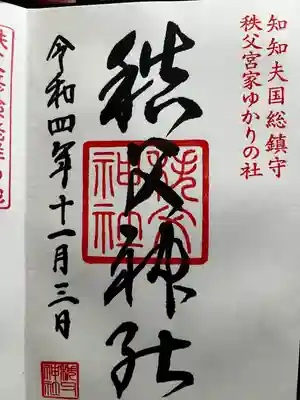 知知夫国総鎮守
秩父宮家ゆかりの社
秩父神社
秩父神社
令和四年十一月三日
秩父神社